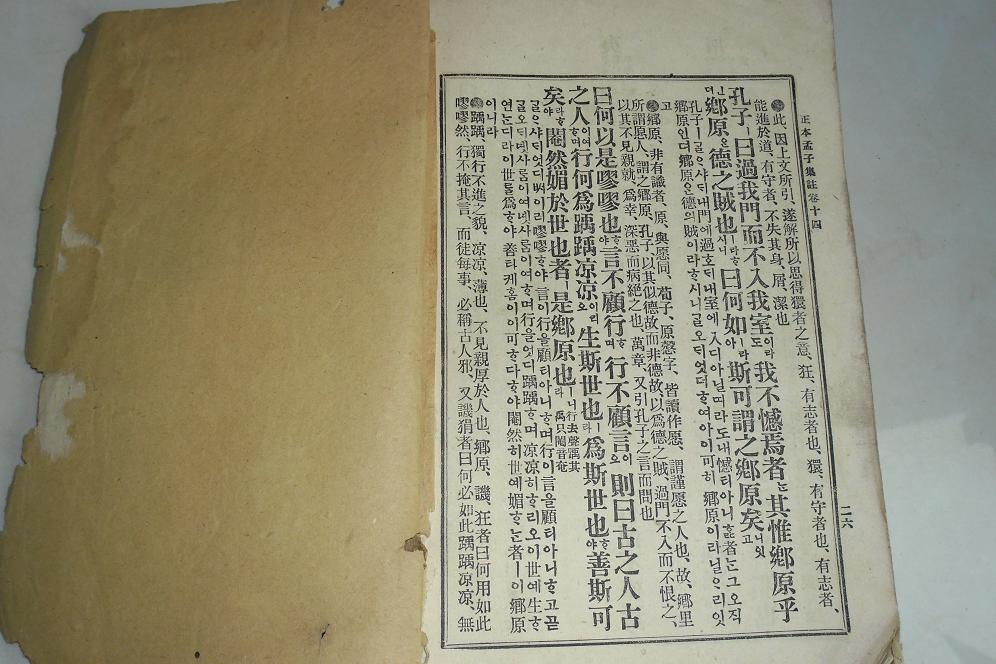 正本孟子集註卷十四
二六
此、因上文所引、遂解所以思得獧者之意、狂、有志者也、獧、有守者也、有志者、
能進於道、有守者、不失其身、屑、潔也
孔子ㅣ曰過我門而不入我室이라도我不憾焉者는其惟鄕原乎
鄕原은德之賊也ㅣ라ᄒᆞ시니曰何如ㅣ라야斯可謂之鄕原矣니잇고
孔子ㅣᄀᆞᆯᄋᆞ샤ᄃᆡ내門에過호ᄃᆡ내室에入디아닐ᄯᅵ라도내憾티아니ᄒᆞᄂᆞᆫ者ᄂᆞᆫ그오직
鄕原인뎌鄕原은德의賊이라ᄒᆞ시니ᄀᆞᆯ오ᄃᆡ엇더ᄒᆞ여야이可히鄕原이라닐ᄋᆞ리잇
고
鄕原、非有識者、原、與愿同、荀子、原慤字、皆讀作愿、謂謹愿之人也、故、鄕里
所謂愿人、謂之鄕原、孔子、以其似德故而非德故、以爲德之賊、過門不入而不恨之、
以其不見親就、爲幸、深惡而痛絶之也、萬章、又引孔子之言而問也
曰何以是嘐嘐也ᄒᆞ야言不顧行ᄒᆞ며行不顧言이오則曰古之人古
之人이여ᄒᆞ며行何爲踽踽凉凉이리오生斯世也ㅣ라爲斯世也ᄒᆞ야善斯可
矣라ᄒᆞ야閹然媚於世也者ㅣ是鄕原也ㅣ니라
行去聲踽其
禹反閹音奄
ᄀᆞᆯᄋᆞ샤ᄃᆡ엇디ᄡᅥ이리嘐嘐ᄒᆞ야言이行을顧티아니ᄒᆞ며行이言을顧티아니ᄒᆞ고곧
ᄀᆞᆯ오ᄃᆡ녯사ᄅᆞᆷ이여녯사ᄅᆞᆷ이여ᄒᆞ며行을엇디踽踽ᄒᆞ며凉凉히ᄒᆞ리오이世예生ᄒᆞ
연ᄂᆞᆫ디라이世ᄅᆞᆯ爲ᄒᆞ야善타케홈이이可ᄒᆞ다ᄒᆞ야閹然히世예媚ᄒᆞᄂᆞᆫ者ㅣ이鄕原
이니라
踽踽、獨行不進之貌、凉凉、薄也、不見親厚於人也、鄕原、譏、狂者曰何用如此
嘐嘐然、行不掩其言、而徒每事、必稱古人邪、又譏狷者曰何必如此踽踽凉凉、無